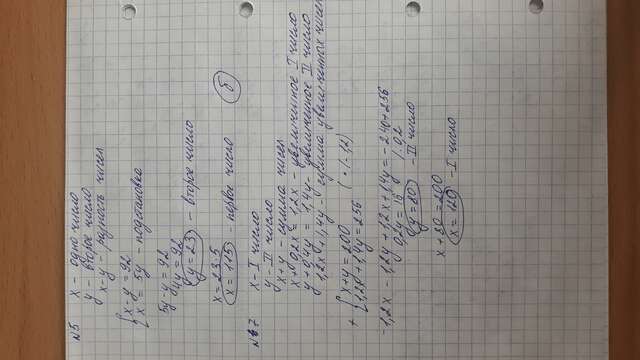 №5 x - одно число
y - второе число
x-y - разность чисел
{ x-y=92
x = 5y - подстановка
5y-y=92
4y=92
y=23 - второе число
x=23·5
x=115 - первое число
б
№7 x - I число
y - II число
x+y - сумма чисел
x+0,2x = 1,2x - увеличенное I число
y+0,4y = 1,4y - увеличенное II число
1,2x+1,4y - сумма увеличенных чисел
+ { x+y=200 | ·(-1,2)
1,2x+1,4y=256
-1,2x-1,2y+1,2x+1,4y=-240+256
0,2y=16 |:0,2
y=80 - II число
x+80=200
x=120 - I число